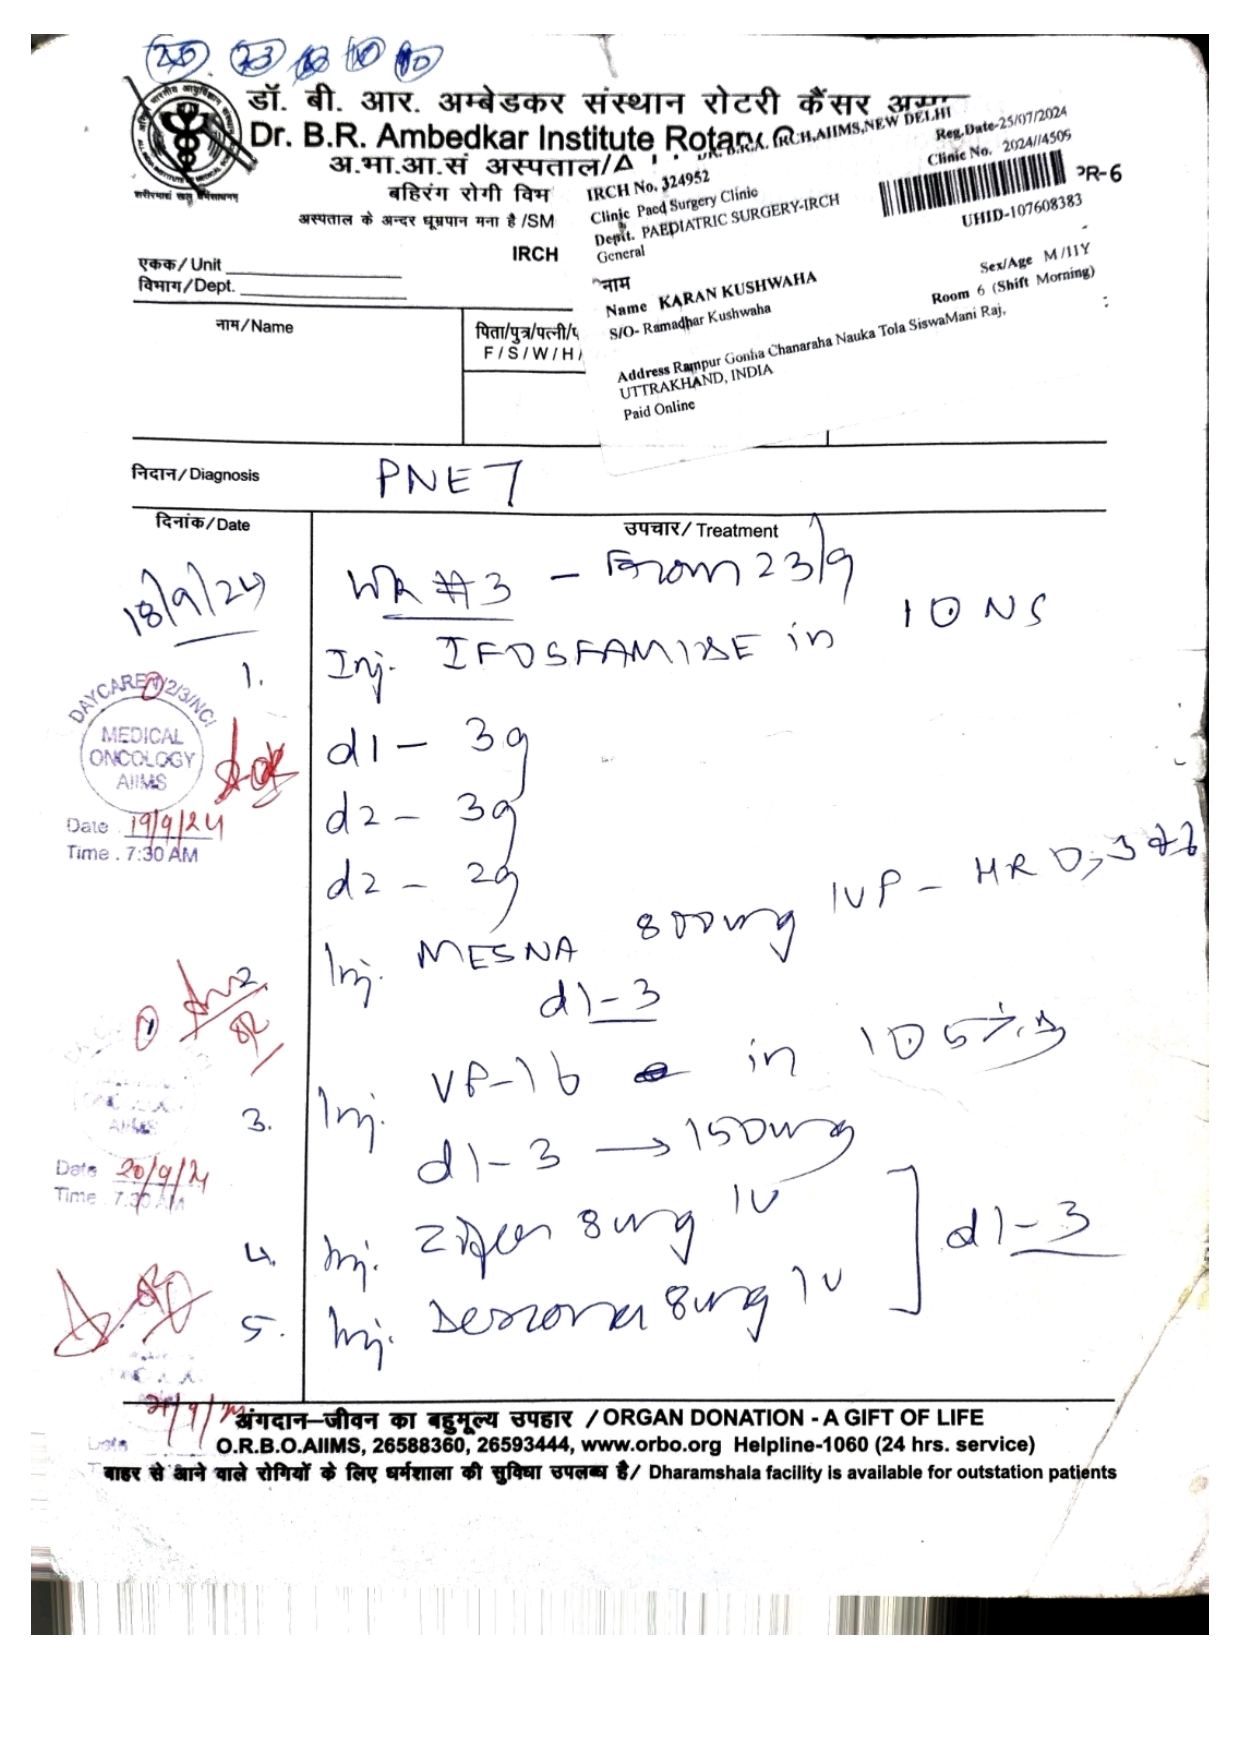 25 23
डॉ. बी. आर. अम्बेडकर संस्थान रोटरी कैंसर
Dr. B.R. Ambedkar Institute Rotary
IRCH, AIIMS, NEW DELHI
अ.भा.आ.सं अस्पताल/A
बहिरंग रोगी विभ
अस्पताल के अन्दर धूम्रपान मना है /SM
IRCH
PR-6
Reg.Date-25/07/2024
IRCH No. 324952
Clinic No. 2024//4509
Clinic Paed Surgery Clinic
Deptt. PAEDIATRIC SURGERY-IRCH
General
UHID-107608383
नाम
Sex/Age M /11Y
Name KARAN KUSHWAHA
Room 6 (Shift Morning)
S/O- Ramadhar Kushwaha
Address Rampur Gonha Chanaraha Nauka Tola SiswaMani Raj,
UTTRAKHAND, INDIA
Paid Online
एकक/ Unit
विभाग/Dept.
नाम/Name
पिता/पुत्र/पत्नी/प
F / S / W / H /
निदान/ Diagnosis PNET
दिनांक/Date
उपचार/ Treatment
18/9/24 #3 - From 23/9
1. Inj. IFOSFAMIDE in 10 NS
d1 - 3g
d2 - 3g
d2 - 2g
Inj. MESNA 800mg IVP - HR 0,3
d1-3
3. Inj. VP-16 in 10 5%
d1-3 → 150mg
4. Inj. 8mg IV
d1-3
5. Inj. 8mg IV
DAYCARE 1/2/3/NCI
MEDICAL
ONCOLOGY
AIIMS
Date 19/9/24
Time . 7:30 AM
AIIMS
Date 20/9/24
Time 7.30 AM
Date
अंगदान–जीवन का बहुमूल्य उपहार / ORGAN DONATION - A GIFT OF LIFE
O.R.B.O.AIIMS, 26588360, 26593444, www.orbo.org Helpline-1060 (24 hrs. service)
बाहर से आने वाले रोगियों के लिए धर्मशाला की सुविधा उपलब्ध है/ Dharamshala facility is available for outstation patients